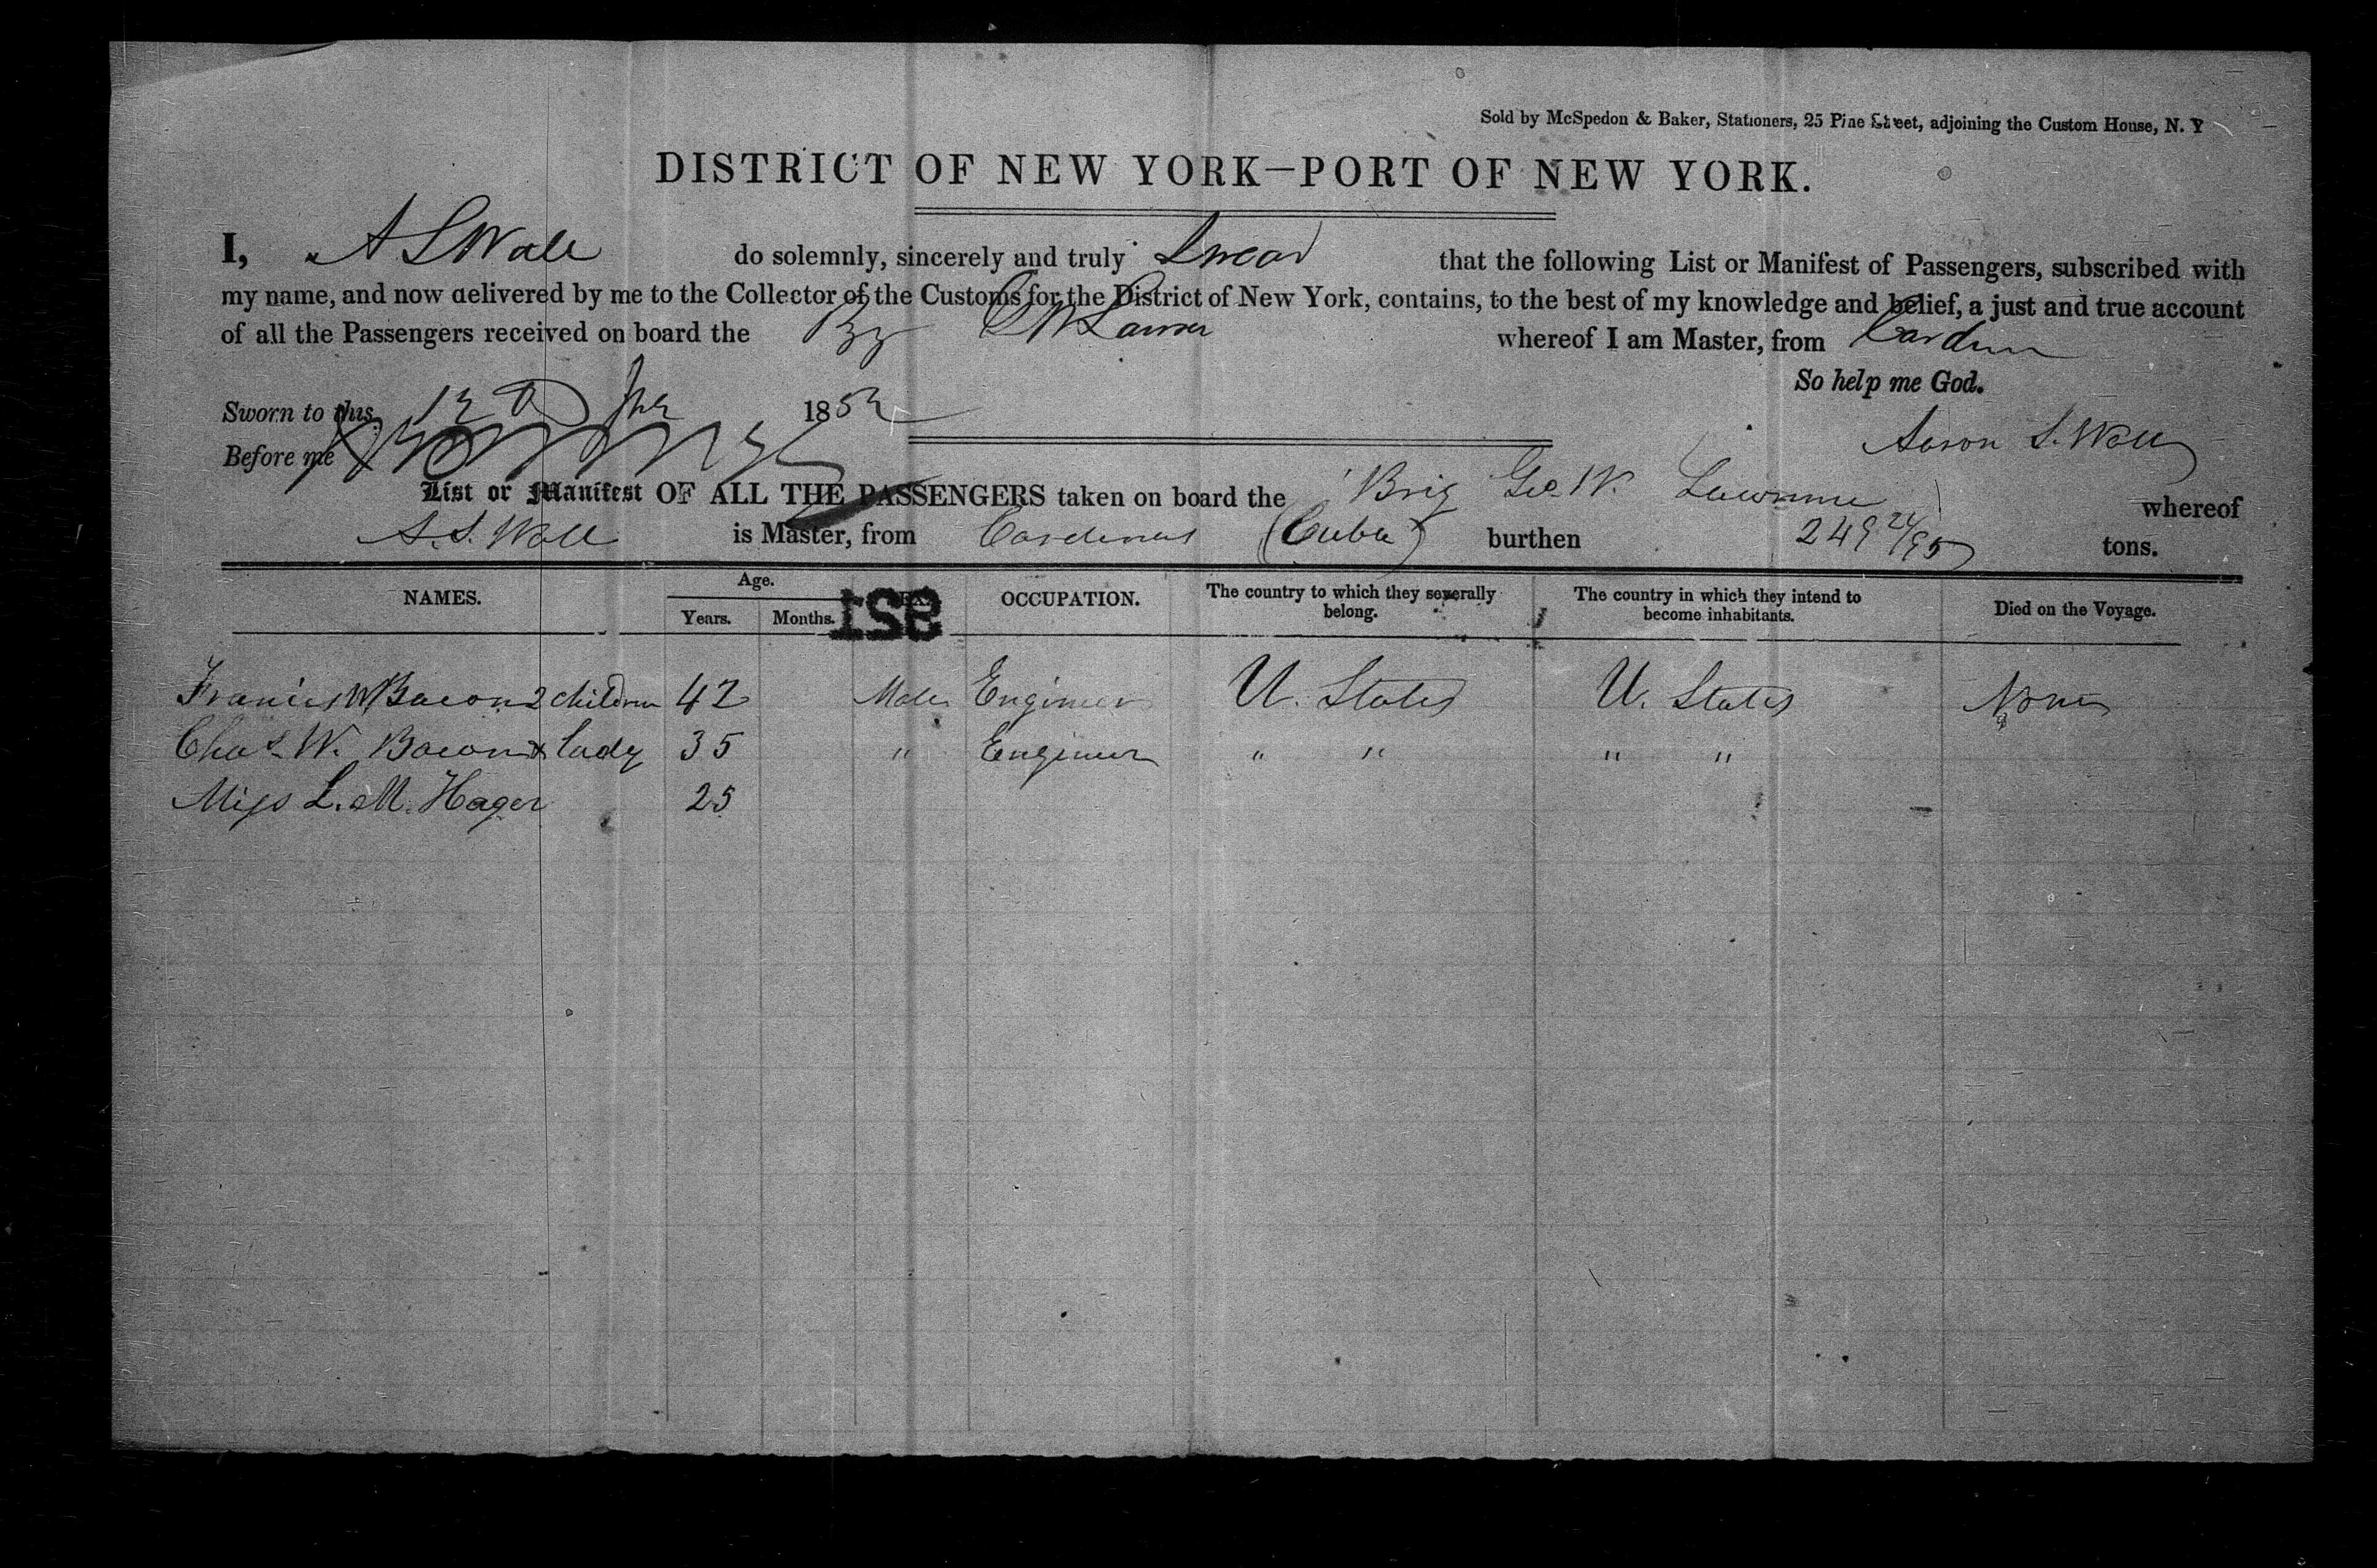 Sold by McSpedon & Baker, Stationers, 25 Pine Street, adjoining the Custom House, N. Y
DISTRICT OF NEW YORK—PORT OF NEW YORK.
I, A S Wall do solemnly, sincerely and truly Swear that the following List or Manifest of Passengers, subscribed with
my name, and now delivered by me to the Collector of the Customs for the District of New York, contains, to the best of my knowledge and belief, a just and true account
of all the Passengers received on board the whereof I am Master, from
So help me God.
Sworn to this 12 1852
Aaron S. Wall
Before me
List or Manifest OF ALL THE PASSENGERS taken on board the Brig Geo. W. whereof
A. S. Wall is Master, from Cardenas (Cuba) burthen 249 24/95 tons.
NAMES. Age. Years. Months. OCCUPATION. The country to which they severally belong. The country in which they intend to become inhabitants. Died on the Voyage.
921
Francis W Bacon 2 children 42 Male Engineer U. States U. States None
Chas W. Bacon & lady 35 " Engineer " " " "
Miss L. M. Hager 25